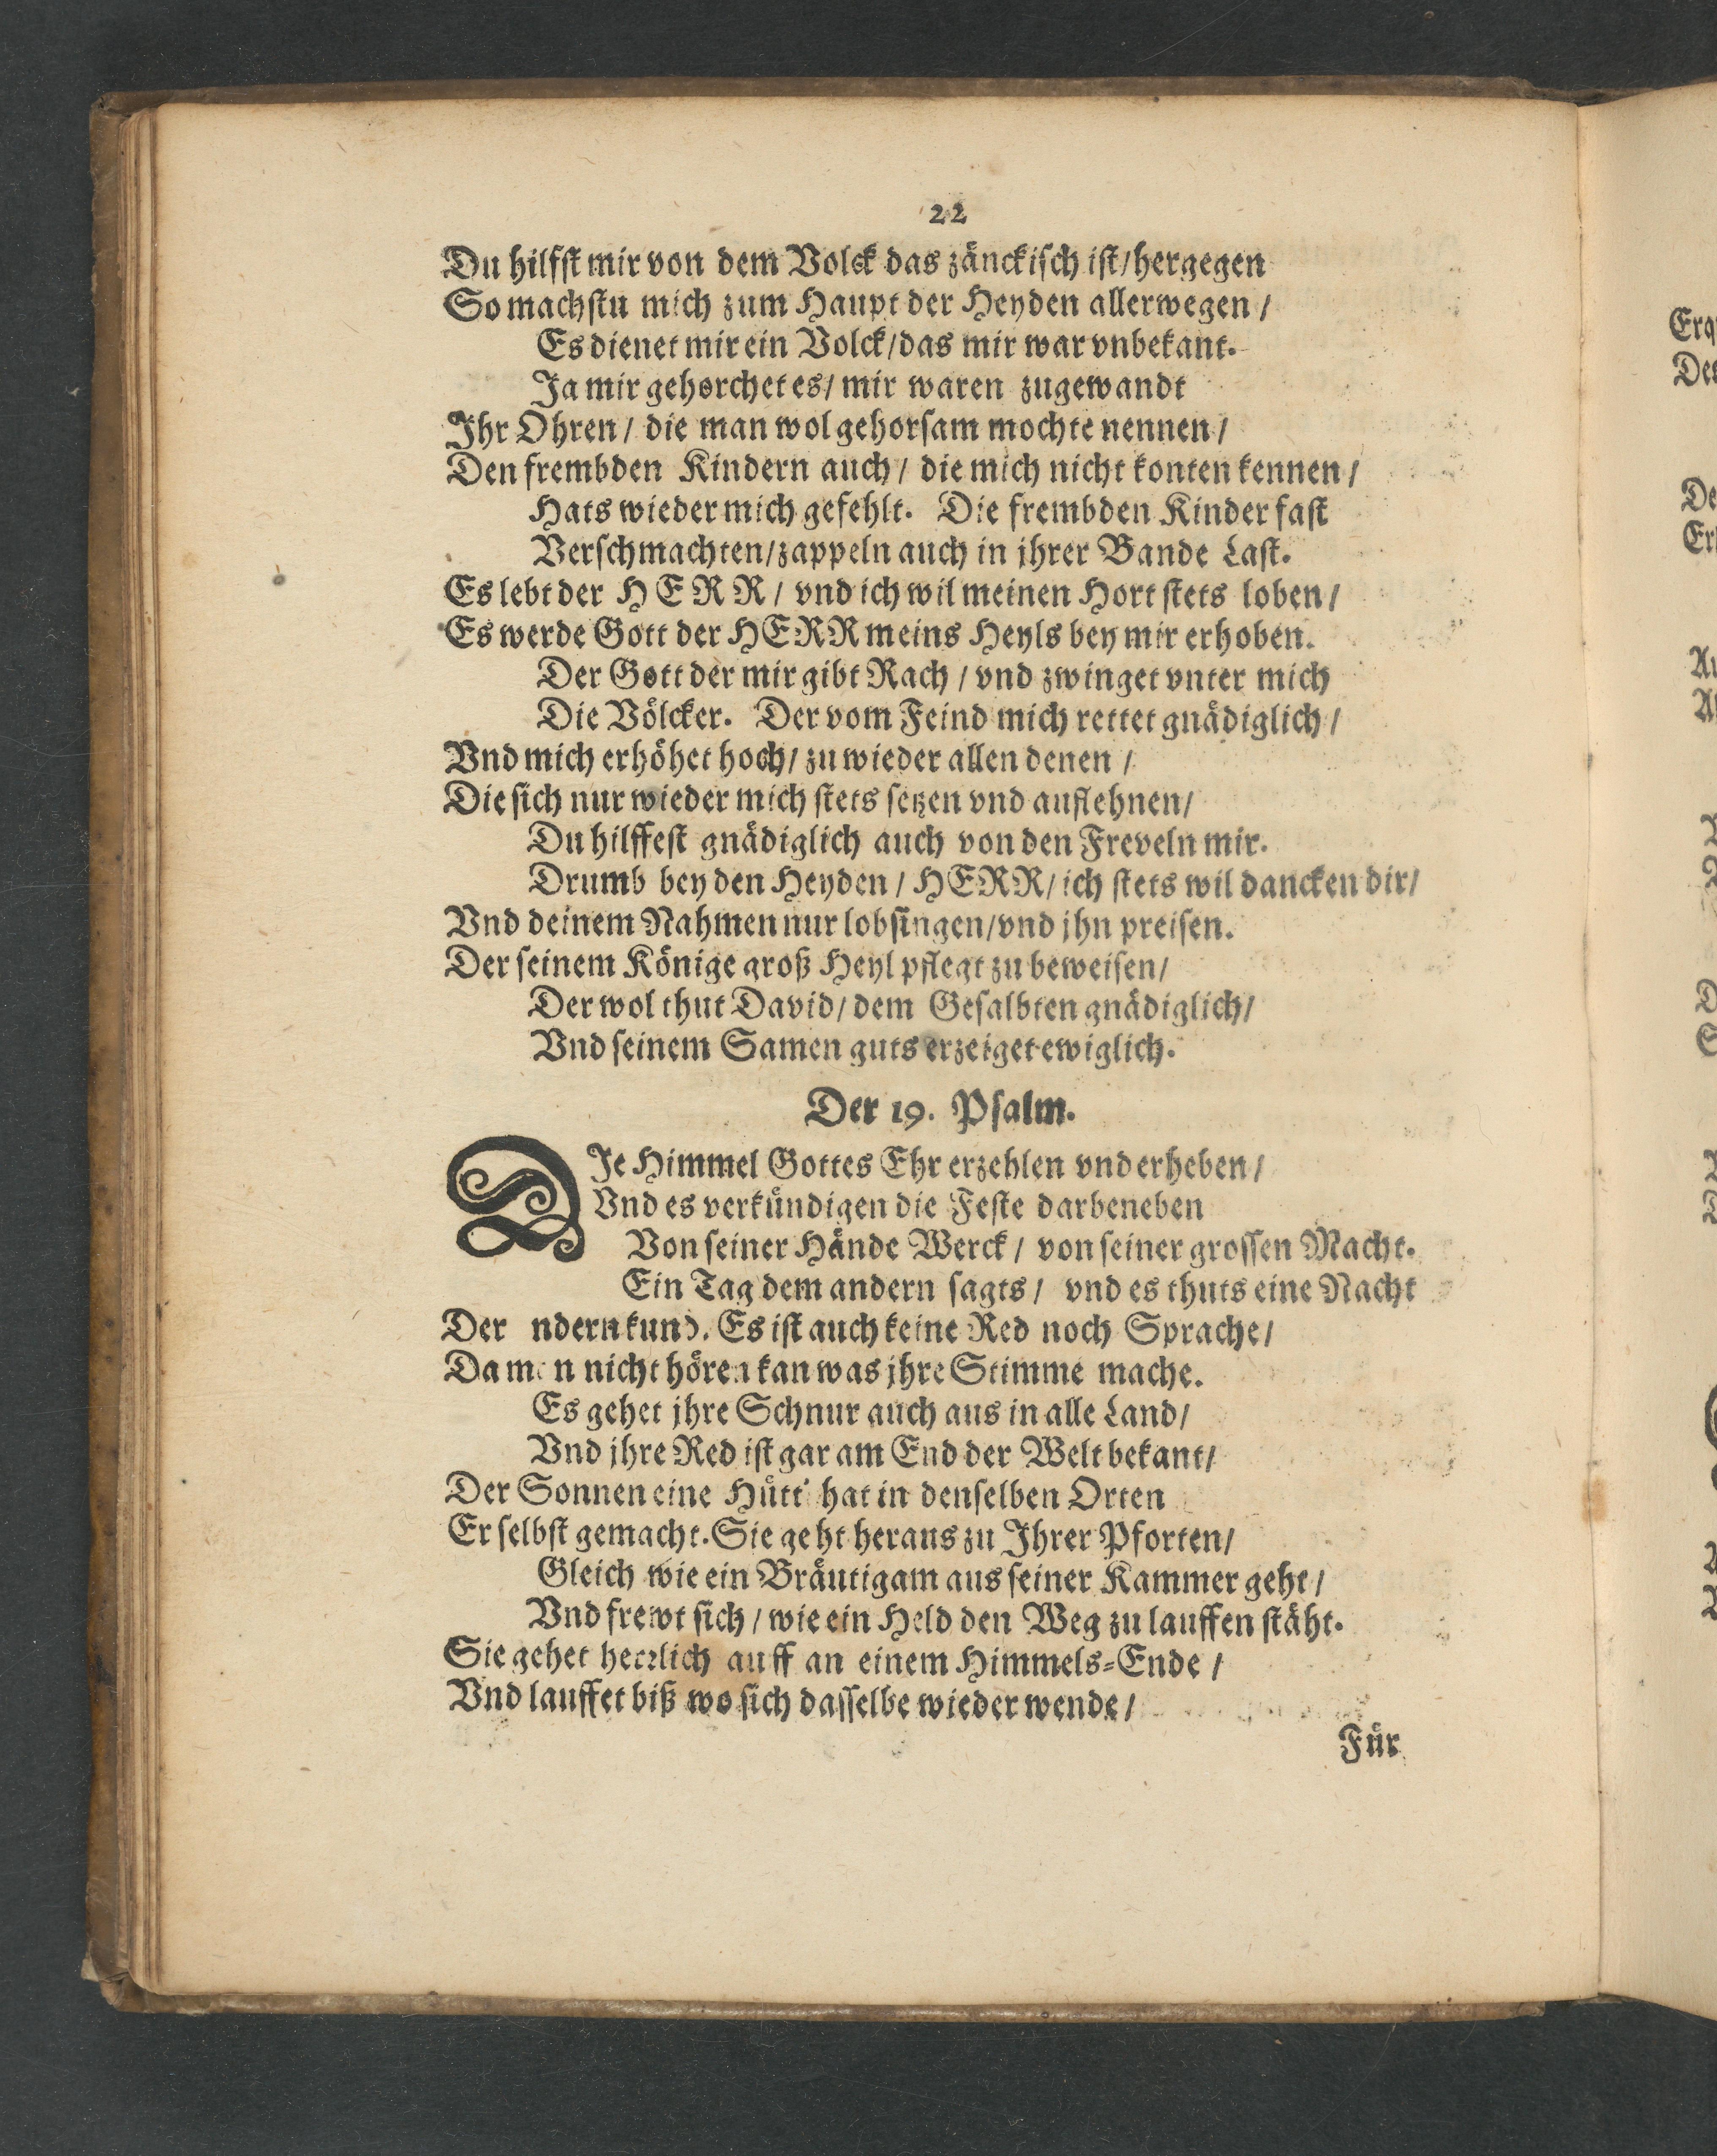 22
Du hilfst mir von dem Volck das zänckisch ist/hergegen
So machstu mich zum Haupt der Heyden allerwegen/
Es dienet mir ein Volck/das mir war vnbekant.
Ja mir gehorchet es/ mir waren zugewandt
Ihr Ohren/ die man wol gehorsam mochte nennen/
Den frembden Kindern auch/ die mich nicht konten kennen/
Hats wieder mich gefehlt. Die frembden Kinder fast
Verschmachten/zappeln auch in jhrer Bande Last.
Es lebt der HERR/ vnd ich wil meinen Hort stets loben/
Es werde Gott der HERR meins Heyls bey mir erhoben.
Der Gott der mir gibt Rach/ vnd zwinget vnter mich
Die Völcker. Der vom Feind mich rettet gnädiglich/
Vnd mich erhöhet hoch/ zu wieder allen denen/
Die sich nur wieder mich stets setzen vnd auflehnen/
Du hilffest gnädiglich auch von den Freveln mir.
Drumb bey den Heyden/ HERR/ ich stets wil dancken dir/
Vnd deinem Nahmen nur lobsingen/vnd jhn preisen.
Der seinem Könige groß Heyl pflegt zu beweisen/
Der wol thut David/ dem Gesalbten gnädiglich/
Vnd seinem Samen guts erzeiget ewiglich.
Der 19. Psalm.
DIe Himmel Gottes Ehr erzehlen vnd erheben/
Vnd es verkündigen die Feste darbeneben
Von seiner Hände Werck/ von seiner grossen Macht.
Ein Tag dem andern sagts/ vnd es thuts eine Nacht
Der ndern kund. Es ist auch keine Red noch Sprache/
Da man nicht hören kan was jhre Stimme mache.
Es gehet jhre Schnur auch aus in alle Land/
Vnd jhre Red ist gar am End der Welt bekant/
Der Sonnen eine Hütt' hat in denselben Orten
Er selbst gemacht. Sie geht heraus zu Ihrer Pforten/
Gleich wie ein Bräutigam aus seiner Kammer geht/
Vnd frewt sich/ wie ein Held den Weg zu lauffen stäht.
Sie gehet herrlich auff an einem Himmels-Ende/
Vnd lauffet biß wo sich dasselbe wieder wende/
Für